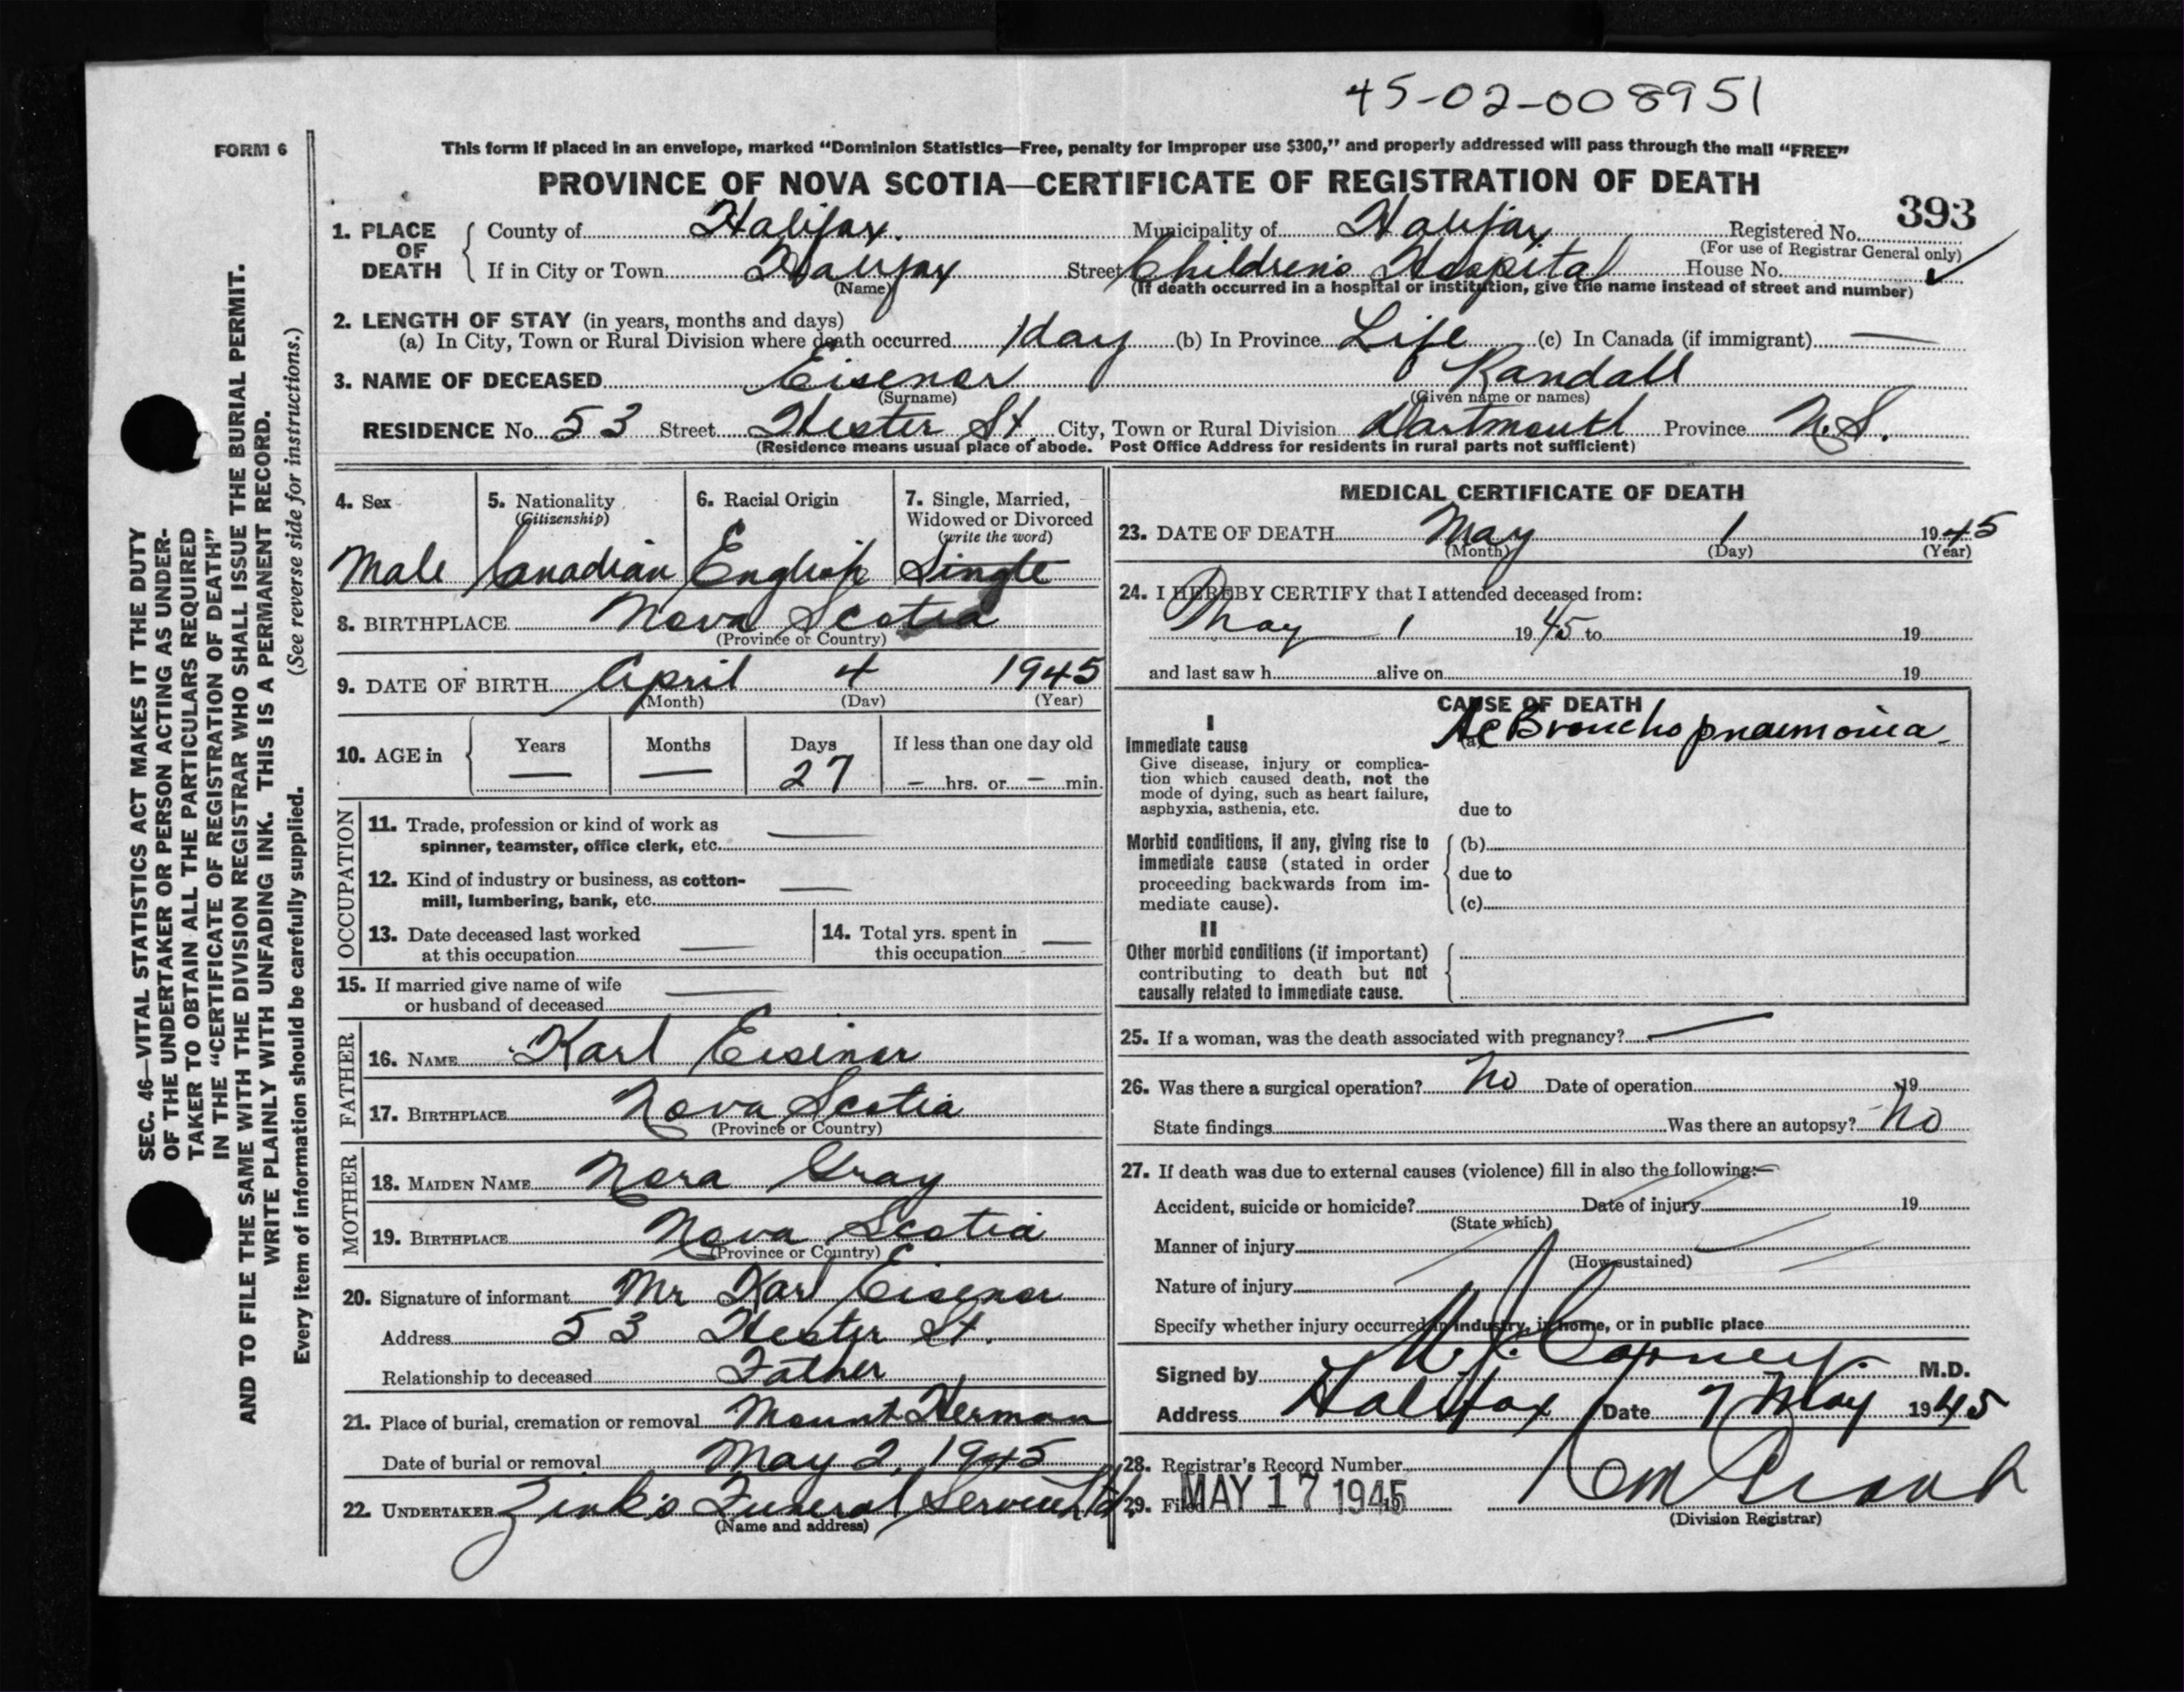 45-02-008951
FORM 6
This form if placed in an envelope, marked “Dominion Statistics—Free, penalty for improper use $300,” and properly addressed will pass through the mail “FREE”
PROVINCE OF NOVA SCOTIA—CERTIFICATE OF REGISTRATION OF DEATH
393
1. PLACE OF DEATH County of Halifax. Municipality of Halifax Registered No.
(For use of Registrar General only)
If in City or Town Halifax Street Children's Hospital House No. ✓
(Name) (If death occurred in a hospital or institution, give the name instead of street and number)
2. LENGTH OF STAY (in years, months and days)
(a) In City, Town or Rural Division where death occurred 1 day (b) In Province Life (c) In Canada (if immigrant) —
3. NAME OF DECEASED Eisenor Randall
(Surname) (Given name or names)
RESIDENCE No. 53 Street Hester St. City, Town or Rural Division Dartmouth Province N.S.
(Residence means usual place of abode. Post Office Address for residents in rural parts not sufficient)
4. Sex
Male
5. Nationality
(Citizenship)
Canadian
6. Racial Origin
English
7. Single, Married,
Widowed or Divorced
(write the word)
Single
8. BIRTHPLACE Nova Scotia
(Province or Country)
9. DATE OF BIRTH April 4 1945
(Month) (Day) (Year)
10. AGE in Years Months Days If less than one day old
— — 27 – hrs. or – min.
OCCUPATION
11. Trade, profession or kind of work as
spinner, teamster, office clerk, etc. —
12. Kind of industry or business, as cotton-
mill, lumbering, bank, etc. —
13. Date deceased last worked
at this occupation —
14. Total yrs. spent in
this occupation —
15. If married give name of wife
or husband of deceased —
FATHER
16. NAME Karl Eisinor
17. BIRTHPLACE Nova Scotia
(Province or Country)
MOTHER
18. MAIDEN NAME Nora Gray
19. BIRTHPLACE Nova Scotia
(Province or Country)
20. Signature of informant Mr Karl Eisenor
Address 53 Hester St.
Relationship to deceased Father
21. Place of burial, cremation or removal Mount Herman
Date of burial or removal May 2, 1945
22. UNDERTAKER Zink's Funeral Service Ltd.
(Name and address)
MEDICAL CERTIFICATE OF DEATH
23. DATE OF DEATH May 1 1945
(Month) (Day) (Year)
24. I HEREBY CERTIFY that I attended deceased from:
May 1 1945 to 19
and last saw h alive on 19
CAUSE OF DEATH
I
Immediate cause
Give disease, injury or complica-
tion which caused death, not the
mode of dying, such as heart failure,
asphyxia, asthenia, etc.
(a) Ac Bronchopneumonia
due to
Morbid conditions, if any, giving rise to
immediate cause (stated in order
proceeding backwards from im-
mediate cause).
(b)
due to
(c)
II
Other morbid conditions (if important)
contributing to death but not
causally related to immediate cause.
25. If a woman, was the death associated with pregnancy? —
26. Was there a surgical operation? No Date of operation 19
State findings Was there an autopsy? No
27. If death was due to external causes (violence) fill in also the following:—
Accident, suicide or homicide? Date of injury 19
(State which)
Manner of injury
(How sustained)
Nature of injury
Specify whether injury occurred in industry, in home, or in public place
Signed by M.D.
Address Halifax Date 7 May 1945
28. Registrar's Record Number
29. Filed MAY 17 1945
(Division Registrar)
SEC. 46—VITAL STATISTICS ACT MAKES IT THE DUTY
OF THE UNDERTAKER OR PERSON ACTING AS UNDER-
TAKER TO OBTAIN ALL THE PARTICULARS REQUIRED
IN THE “CERTIFICATE OF REGISTRATION OF DEATH”
AND TO FILE THE SAME WITH THE DIVISION REGISTRAR WHO SHALL ISSUE THE BURIAL PERMIT.
WRITE PLAINLY WITH UNFADING INK. THIS IS A PERMANENT RECORD.
Every item of information should be carefully supplied. (See reverse side for instructions.)